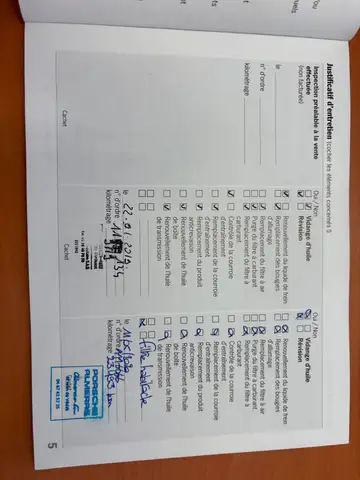 Justificatif d'entretien (cocher les éléments concernés !)
Inspection préalable à la vente
effectuée
(non facturée)
le
n° d'ordre
kilométrage
Cachet
Oui / Non
Vidange d'huile
Révision
Renouvellement du liquide de frein
Remplacement des bougies
d'allumage
Remplacement du filtre à air
Purge du filtre à carburant
Remplacement du filtre à
carburant
Contrôle de la courroie
d'entraînement
Remplacement de la courroie
d'entraînement
Remplacement du produit
anticrevaison
Renouvellement de l'huile
de boîte
Renouvellement de l'huile
de transmission
le 22.
n° d'ordre
kilométrage
Cachet
Oui / Non
Vidange d'huile
Révision
Renouvellement du liquide de frein
Remplacement des bougies
d'allumage
Remplacement du filtre à air
Purge du filtre à carburant
Remplacement du filtre à
carburant
Contrôle de la courroie
d'entraînement
Remplacement de la courroie
d'entraînement
Remplacement du produit
anticrevaison
Renouvellement de l'huile
de boîte
Renouvellement de l'huile
de transmission
Filtre habitacle
le
n° d'ordre
kilométrage
Cachet
PORSCHE
ALMERAS
5